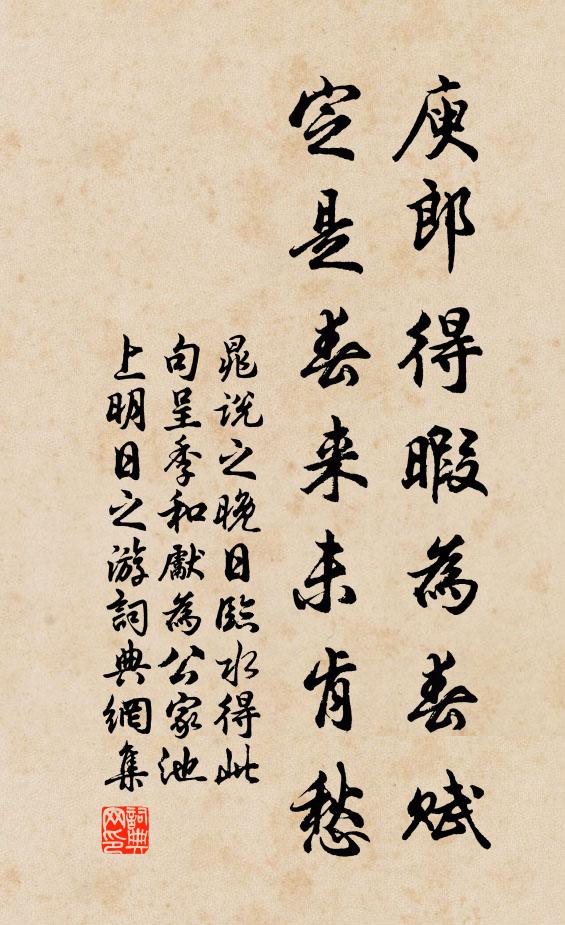 庾郎得暇為春賦
定是春來未肯愁
晁說之晚日臨水得此
句呈季和獻為公家池
上明日之游詞典網集
詞典
网印